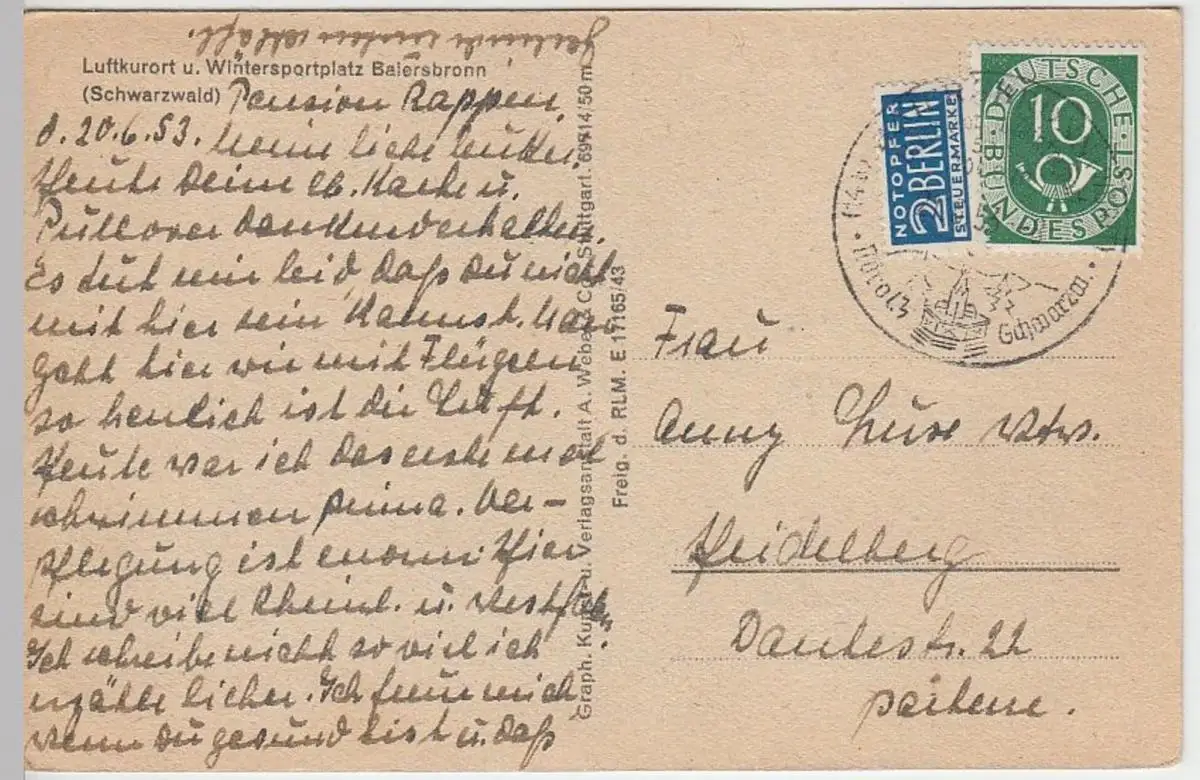 Luftkurort u. Wintersportplatz Baiersbronn
(Schwarzwald) Pension Rappen,
d. 20.6.53. Meine liebe
Heute Deine lb. Karte u.
Pullover dankend erhalten.
Es tut mir leid daß Du nicht
mit hier sein kannst. Man
geht hier wie mit Flügeln
so herrlich ist die Luft.
Heute war ich das erste mal
schwimmen prima. Ver-
pflegung ist enorm. Hier
sind viel Rheinl. u. Westfalen
Ich schreibe nicht so viel ich
erzähle lieber. Ich freue mich
wenn Du gesund bist u. daß
unten schläft.
Graph. Kunst- u. Verlagsanstalt A. Weber & Co. Stuttgart. 69914/50m
Freig. d. RLM. E 17165/43
NOTOPFER
2 BERLIN
STEUERMARKE
DEUTSCHE BUNDESPOST
10
Schwarzw.
Frau
Anny Wtw.
Heidelberg
Dantestr. 22
parterre.